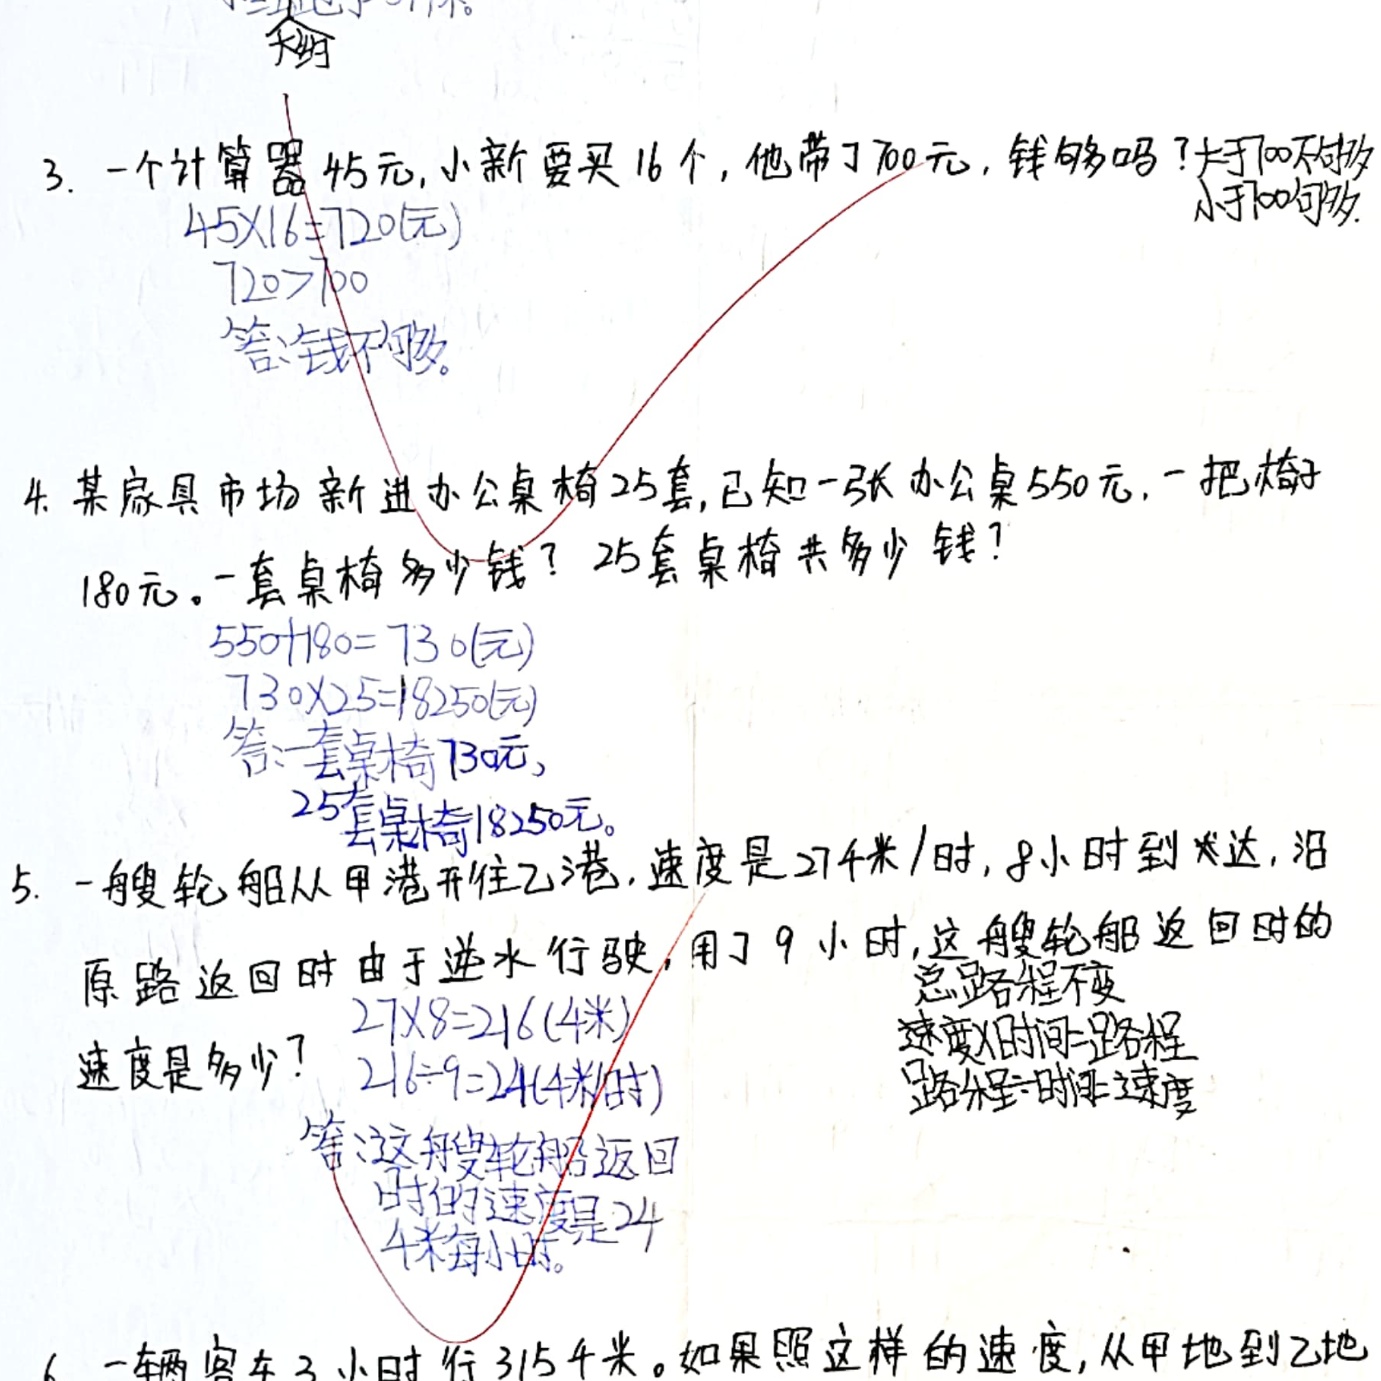 3. 一个计算器45元,小新要买16个,他带了700元,钱够吗?大于700不够
小于700够.
45×16=720(元)
720>700
答:钱不够。
4. 某家具市场新进办公桌椅25套,已知一张办公桌550元,一把椅子
180元。一套桌椅多少钱? 25套桌椅共多少钱?
550+180=730(元)
730×25=18250(元)
答:一套桌椅730元,
25套桌椅18250元。
5. 一艘轮船从甲港开往乙港,速度是27千米/时,8小时到达,沿
原路返回时由于逆水行驶,用了9小时,这艘轮船返回时的
总路程不变
速度是多少?
27×8=216(千米)
速度×时间=路程
216÷9=24(千米/时)
路程÷时间=速度
答:这艘轮船返回
时的速度是24
千米每小时。
6. 一辆客车3小时行315千米。如果照这样的速度,从甲地到乙地